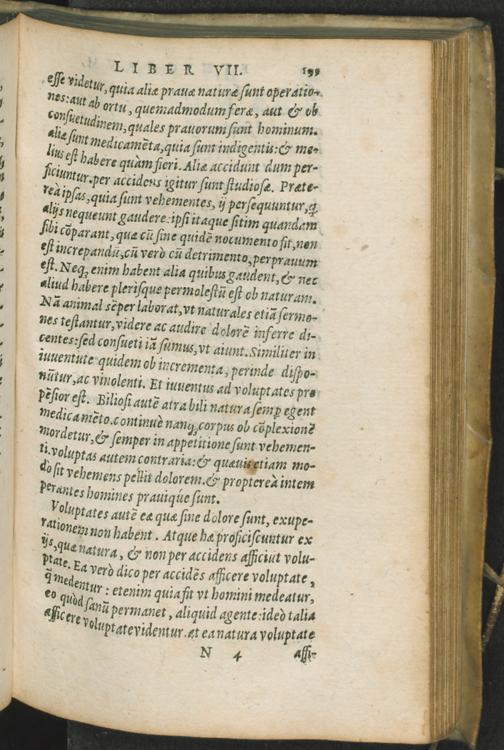 LIBER VII. 199
esse videtur, quia aliæ pravæ naturæ sunt operatio-
nes: aut ab ortu, quemadmodum feræ, aut & ob
consuetudinem, quales prauorum sunt hominum.
aliæ sunt medicamēta, quia sunt indigentis: & me-
lius est habere quàm fieri. Aliæ accidunt dum per-
ficiuntur. per accidens igitur sunt studiosæ. Præte-
reà ipsas, quia sunt vehementes, ij persequuntur, q̃
alijs nequeunt gaudere: ipsi itaque sitim quandam
sibi cōparant, quæ cũ sine quidē nocumento sit, non
est increpandũ, cũ verò cũ detrimento, perprauum
est. Neq; enim habent alia quibus gaudent, & nec
aliud habere plerisque permolestũ est ob naturam.
Nã animal sēper laborat, vt naturales etiã sermo-
nes testantur, videre ac audire dolorē inferre di-
centes: sed consueti iã sumus, vt aiunt. Similiter in
iuuentute quidem ob incrementa, perinde dispo-
nũtur, ac vinolenti. Et iuuentus ad voluptates pro
pēsior est. Biliosi autē atra bili natura semp egent
medicamēto. continuè nanq; corpus ob cōplexionē
mordetur, & semper in appetitione sunt vehemen-
ti. voluptas autem contraria: & quæuis etiam mo-
do sit vehemens pellit dolorem. & proptereà intem
perantes homines prauique sunt.
Voluptates autē eæ quæ sine dolore sunt, exupe-
rationem non habent. Atque hæ proficiscuntur ex
ijs, quæ natura, & non per accidens afficiũt volu-
ptate. Ea verò dico per accidēs afficere voluptate,
q̃ medentur: etenim quia fit vt homini medeatur,
eo quòd sanũ permanet, aliquid agente: ideò talia
afficere voluptate videntur. at ea natura voluptate
N 4 affi-